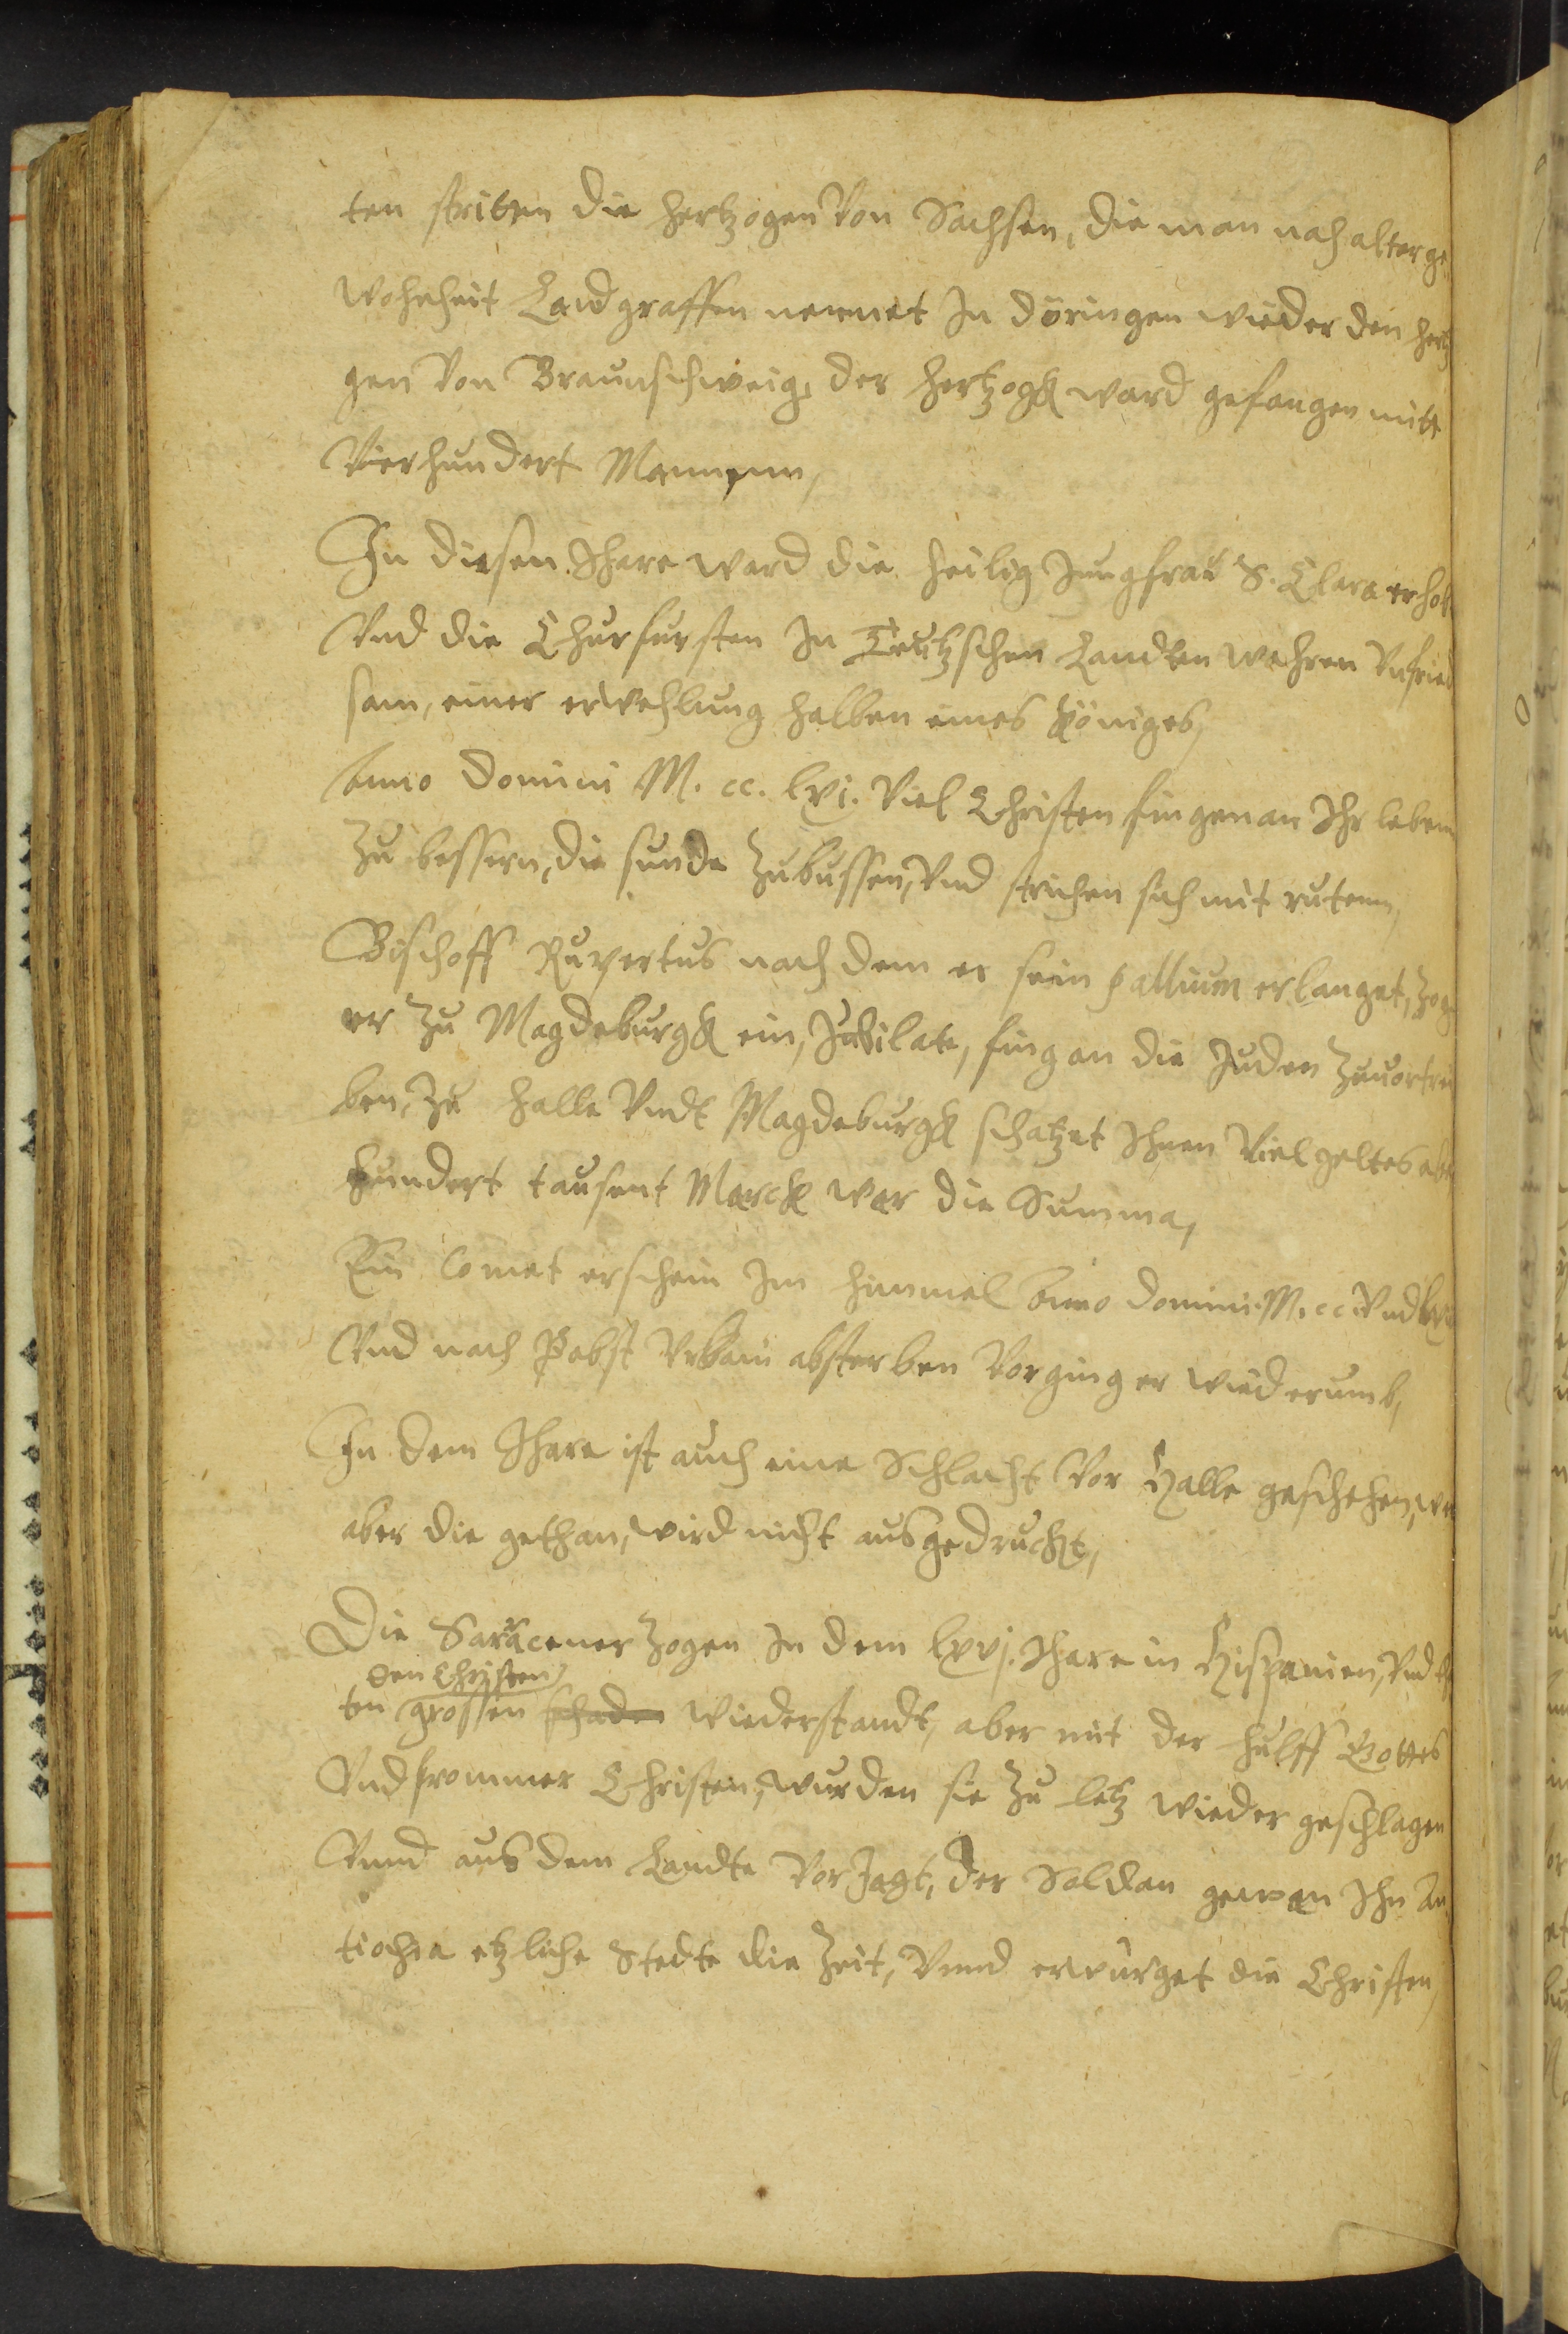 ten stritten die hertzogen Von Sachsen, die man nach alter ge
wohnheit Landgraffen nennet In döringen wieder den hertz
gen Von Braunschweig, der hertzogk ward gefangen mitt
Vierhundert Mannenn,
In diesen Ihare ward die heilig Jungfrau S. Clara erhob
Vnd die Churfursten In Teutzschen Landten wahren Vnfried
sam, einer erwehlung halben eines Königes,
Anno Domini M. cc. lvj. Viel Christen fingen an Ihr lebenn
Zu bessern, die sunde Zubussen, Vnd strichen sich mit rutenn,
Bischoff Rupertus nach dem er sein pallium erlanget, zog
er Zu Magdeburgk ein, Jubilate, fing an die Juden Zuuortrei
ben, Zu Halle Vndt Magdeburgk schatzet Ihnen Viel geltes abe
hundert tausent Marck war die Summa,
Ein Comet erschein Im himmel Anno Domini M. cc Vnd
Vnd nach Pabst Vrbani absterben Vorging er wiederumb,
In dem Ihare ist auch eine Schlacht Vor Halle geschehen, wer
aber die gethan, wird nicht ausgedruckt,
Die Saracener Zogen In dem lxvj. Ihare in Hispanien, Vnd
den Christen
ten grossen schaden wiederstandt, aber mit der hulff Gottes
Vnd frommer Christen, wurden sie Zu letz wieder geschlagen
Vnnd aus dem Landte VorJagt, der Soldan gewan Ihn An
tiochia etzliche Stedte die Zeit, Vnnd erwurget die Christen,